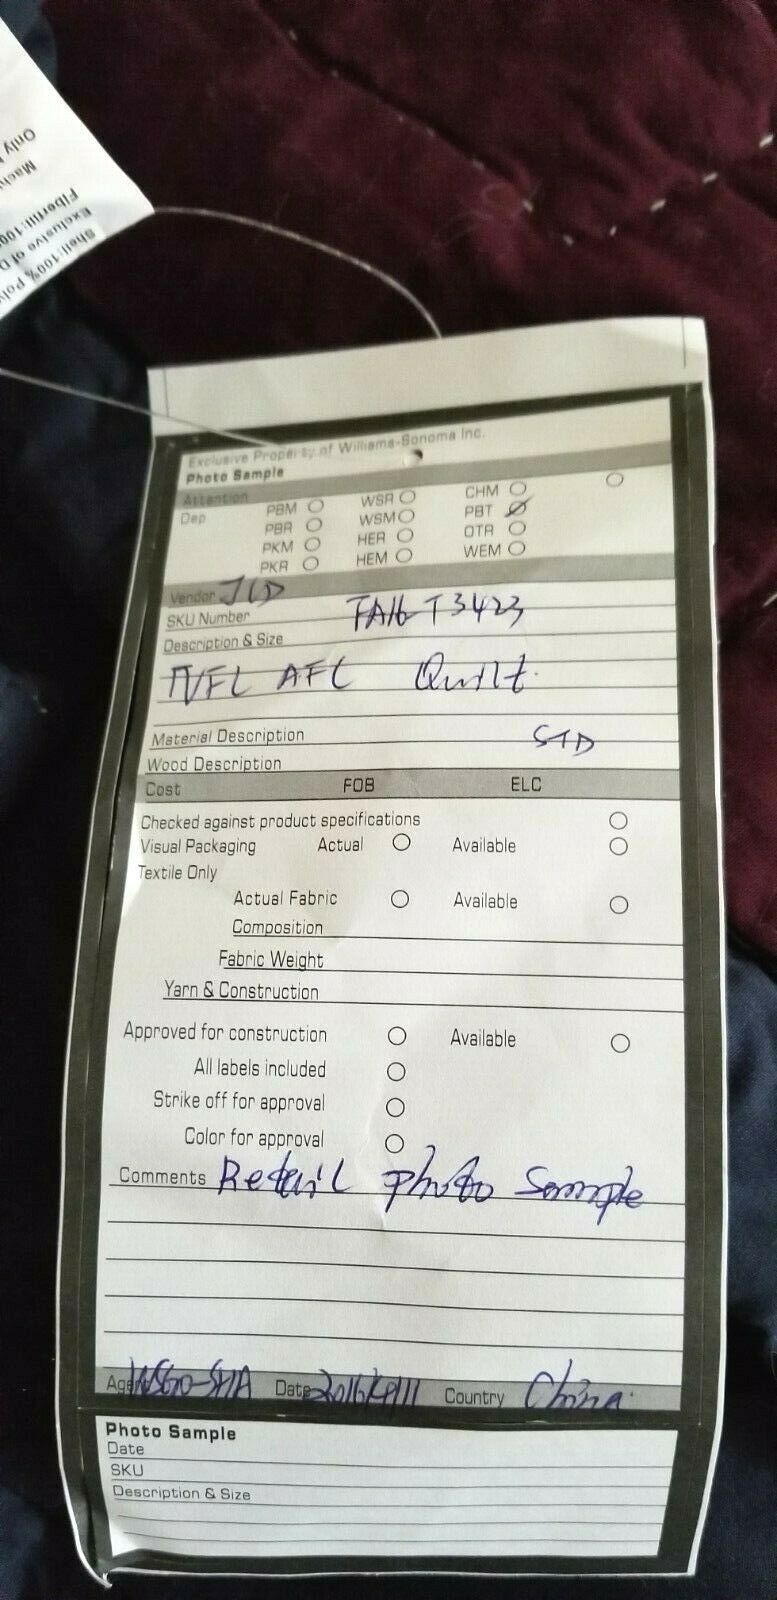 Only
Mach
Fiberfill:100
Exclusive of D
Shell:100% Poly
Exclusive Property of Williams-Sonoma Inc.
Photo Sample
Attention
Dep PBM WSR CHM
PBR WSM PBT
PKM HER OTR
PKR HEM WEM
Vendor JLD
SKU Number FA16 T3423
Description & Size
NFL AFC Quilt.
Material Description STD
Wood Description
Cost FOB ELC
Checked against product specifications
Visual Packaging Actual Available
Textile Only
Actual Fabric Available
Composition
Fabric Weight
Yarn & Construction
Approved for construction Available
All labels included
Strike off for approval
Color for approval
Comments Retail photo Sample
Agent WSGO-SHA Date Country China.
Photo Sample
Date
SKU
Description & Size